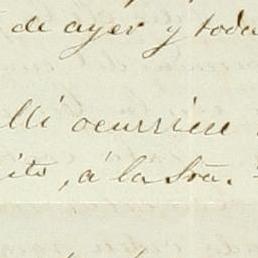 de ayer y toda
alli ocurriese
ito, á la Sra.